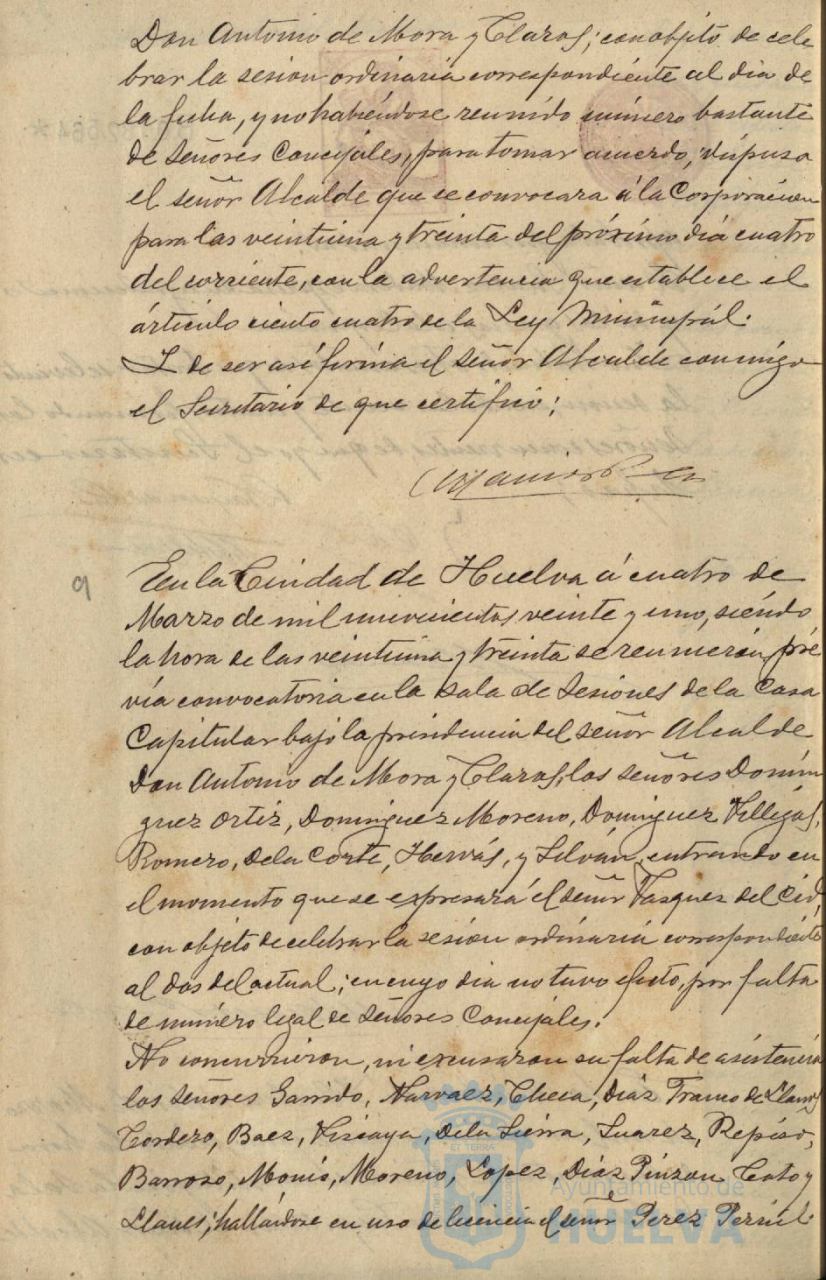 Don Antonio de Mora y Claros; con objeto de cele
brar la sesion ordinaria correspondiente al dia de
la fecha, y no habiéndose reunido número bastante
de Señores Concejales, para tomar acuerdo, dispuso
el señor Alcalde que se convocara á la Corporación
para las veintiuna y treinta del próximo dia cuatro
del corriente, con la advertencia que establece el
ártículo ciento cuatro de la Ley Municipál.
I de ser así firma el señor Alcalde conmigo
el Secretario de que certifico;
9
En la Ciudad de Huelva á cuatro de
Marzo de mil novecientos veinte y uno, siendo
la hora de las veintiuna y treinta se reunieron, pré
vía convocatoria en la sala de Sesiones de la Casa
Capitular bajo la presidencia del señor Alcalde
Don Antonio de Mora y Claros, los señores Domín
guez Ortiz, Dominguez Moreno, Dominguez Villegas,
Romero, De la Corte, Hervás, y Silván, entrando en
el momento que se expresará el señor Vasquez del Cid,
con objeto de celebrar la sesion ordinaria correspondiente
al dos del actual; en cuyo dia no tuvo efecto, por falta
de número legal de Señores Concejales.
No concurrieron, ni excusaron su falta de asistencia
los señores Garrido, Narvaez, Checa, Diaz Franco de Llanos
Cordero, Baez, Viscaya, De la Sierra, Suarez, Repiso,
Barroso, Monís, Moreno, Lopez, Diáz Pinzon, Coto y
Llanes; hallándose en uso de licencia el señor Perez
Ayuntamiento de
HUELVA